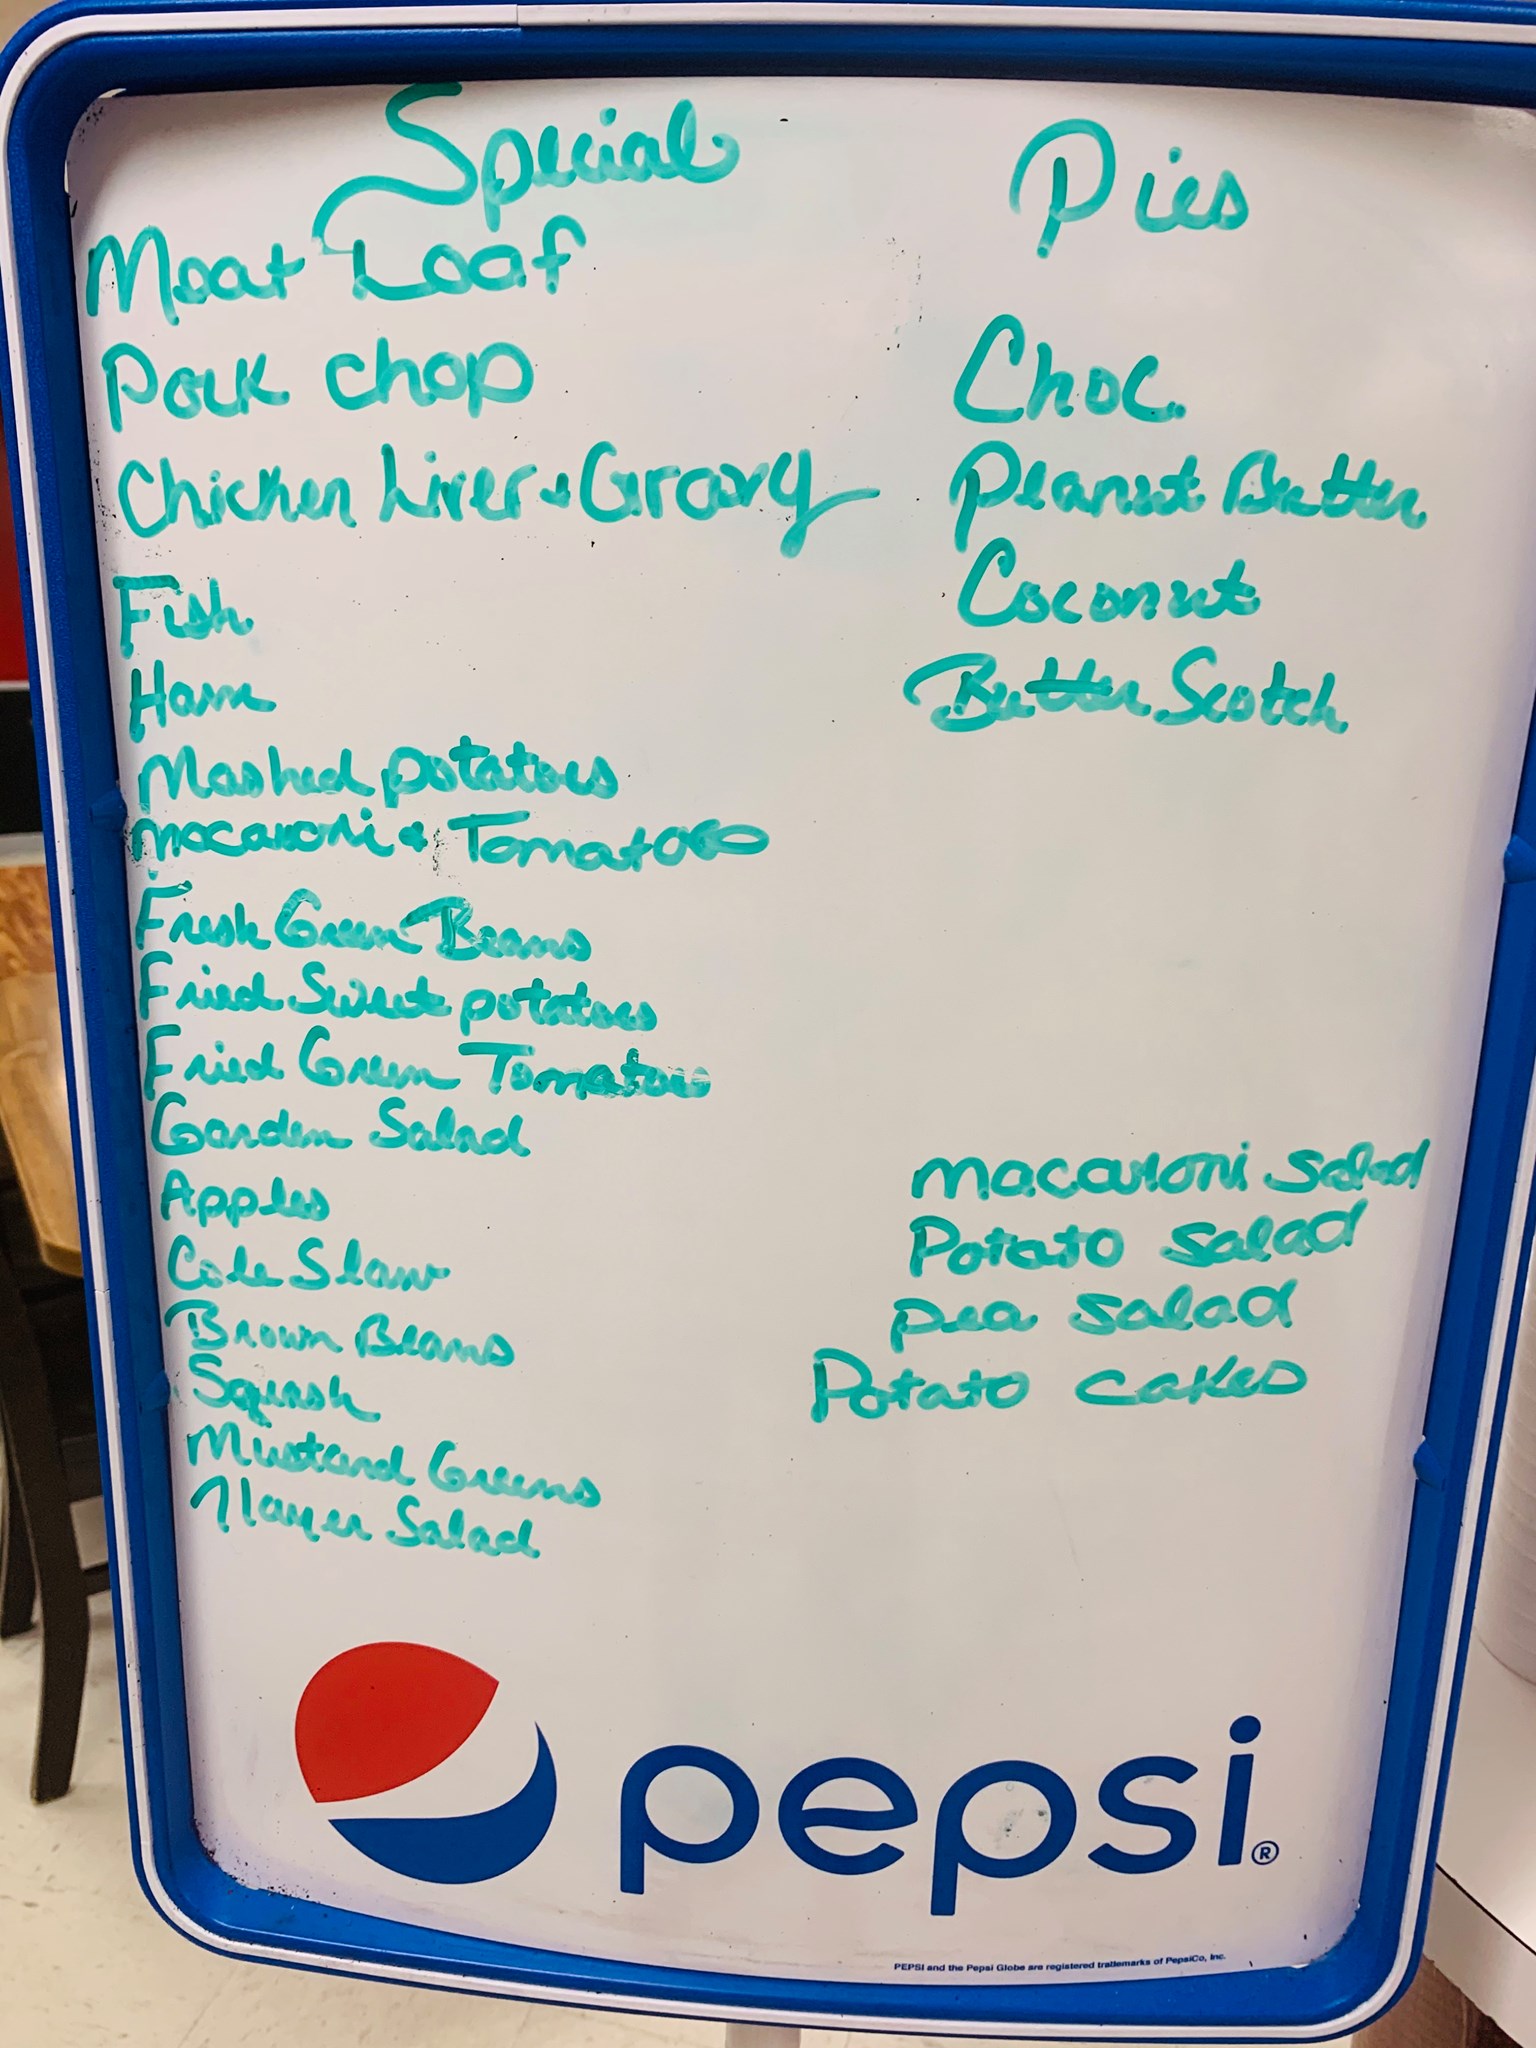 Special
Meat Loaf
Pork chop
Chicken Liver & Gravy
Fish
Ham
Mashed potatoes
macaroni & Tomatoes
Fresh Green Beans
Fried Sweet potatoes
Fried Green Tomatoes
Garden Salad
Apples
Cole Slaw
Brown Beans
Squash
Mustard Greens
7 Layer Salad
Pies
Choc.
Peanut Butter
Coconut
Butter Scotch
macaroni salad
Potato salad
pea salad
Potato cakes
pepsi®
PEPSI and the Pepsi Globe are registered trademarks of PepsiCo, Inc.